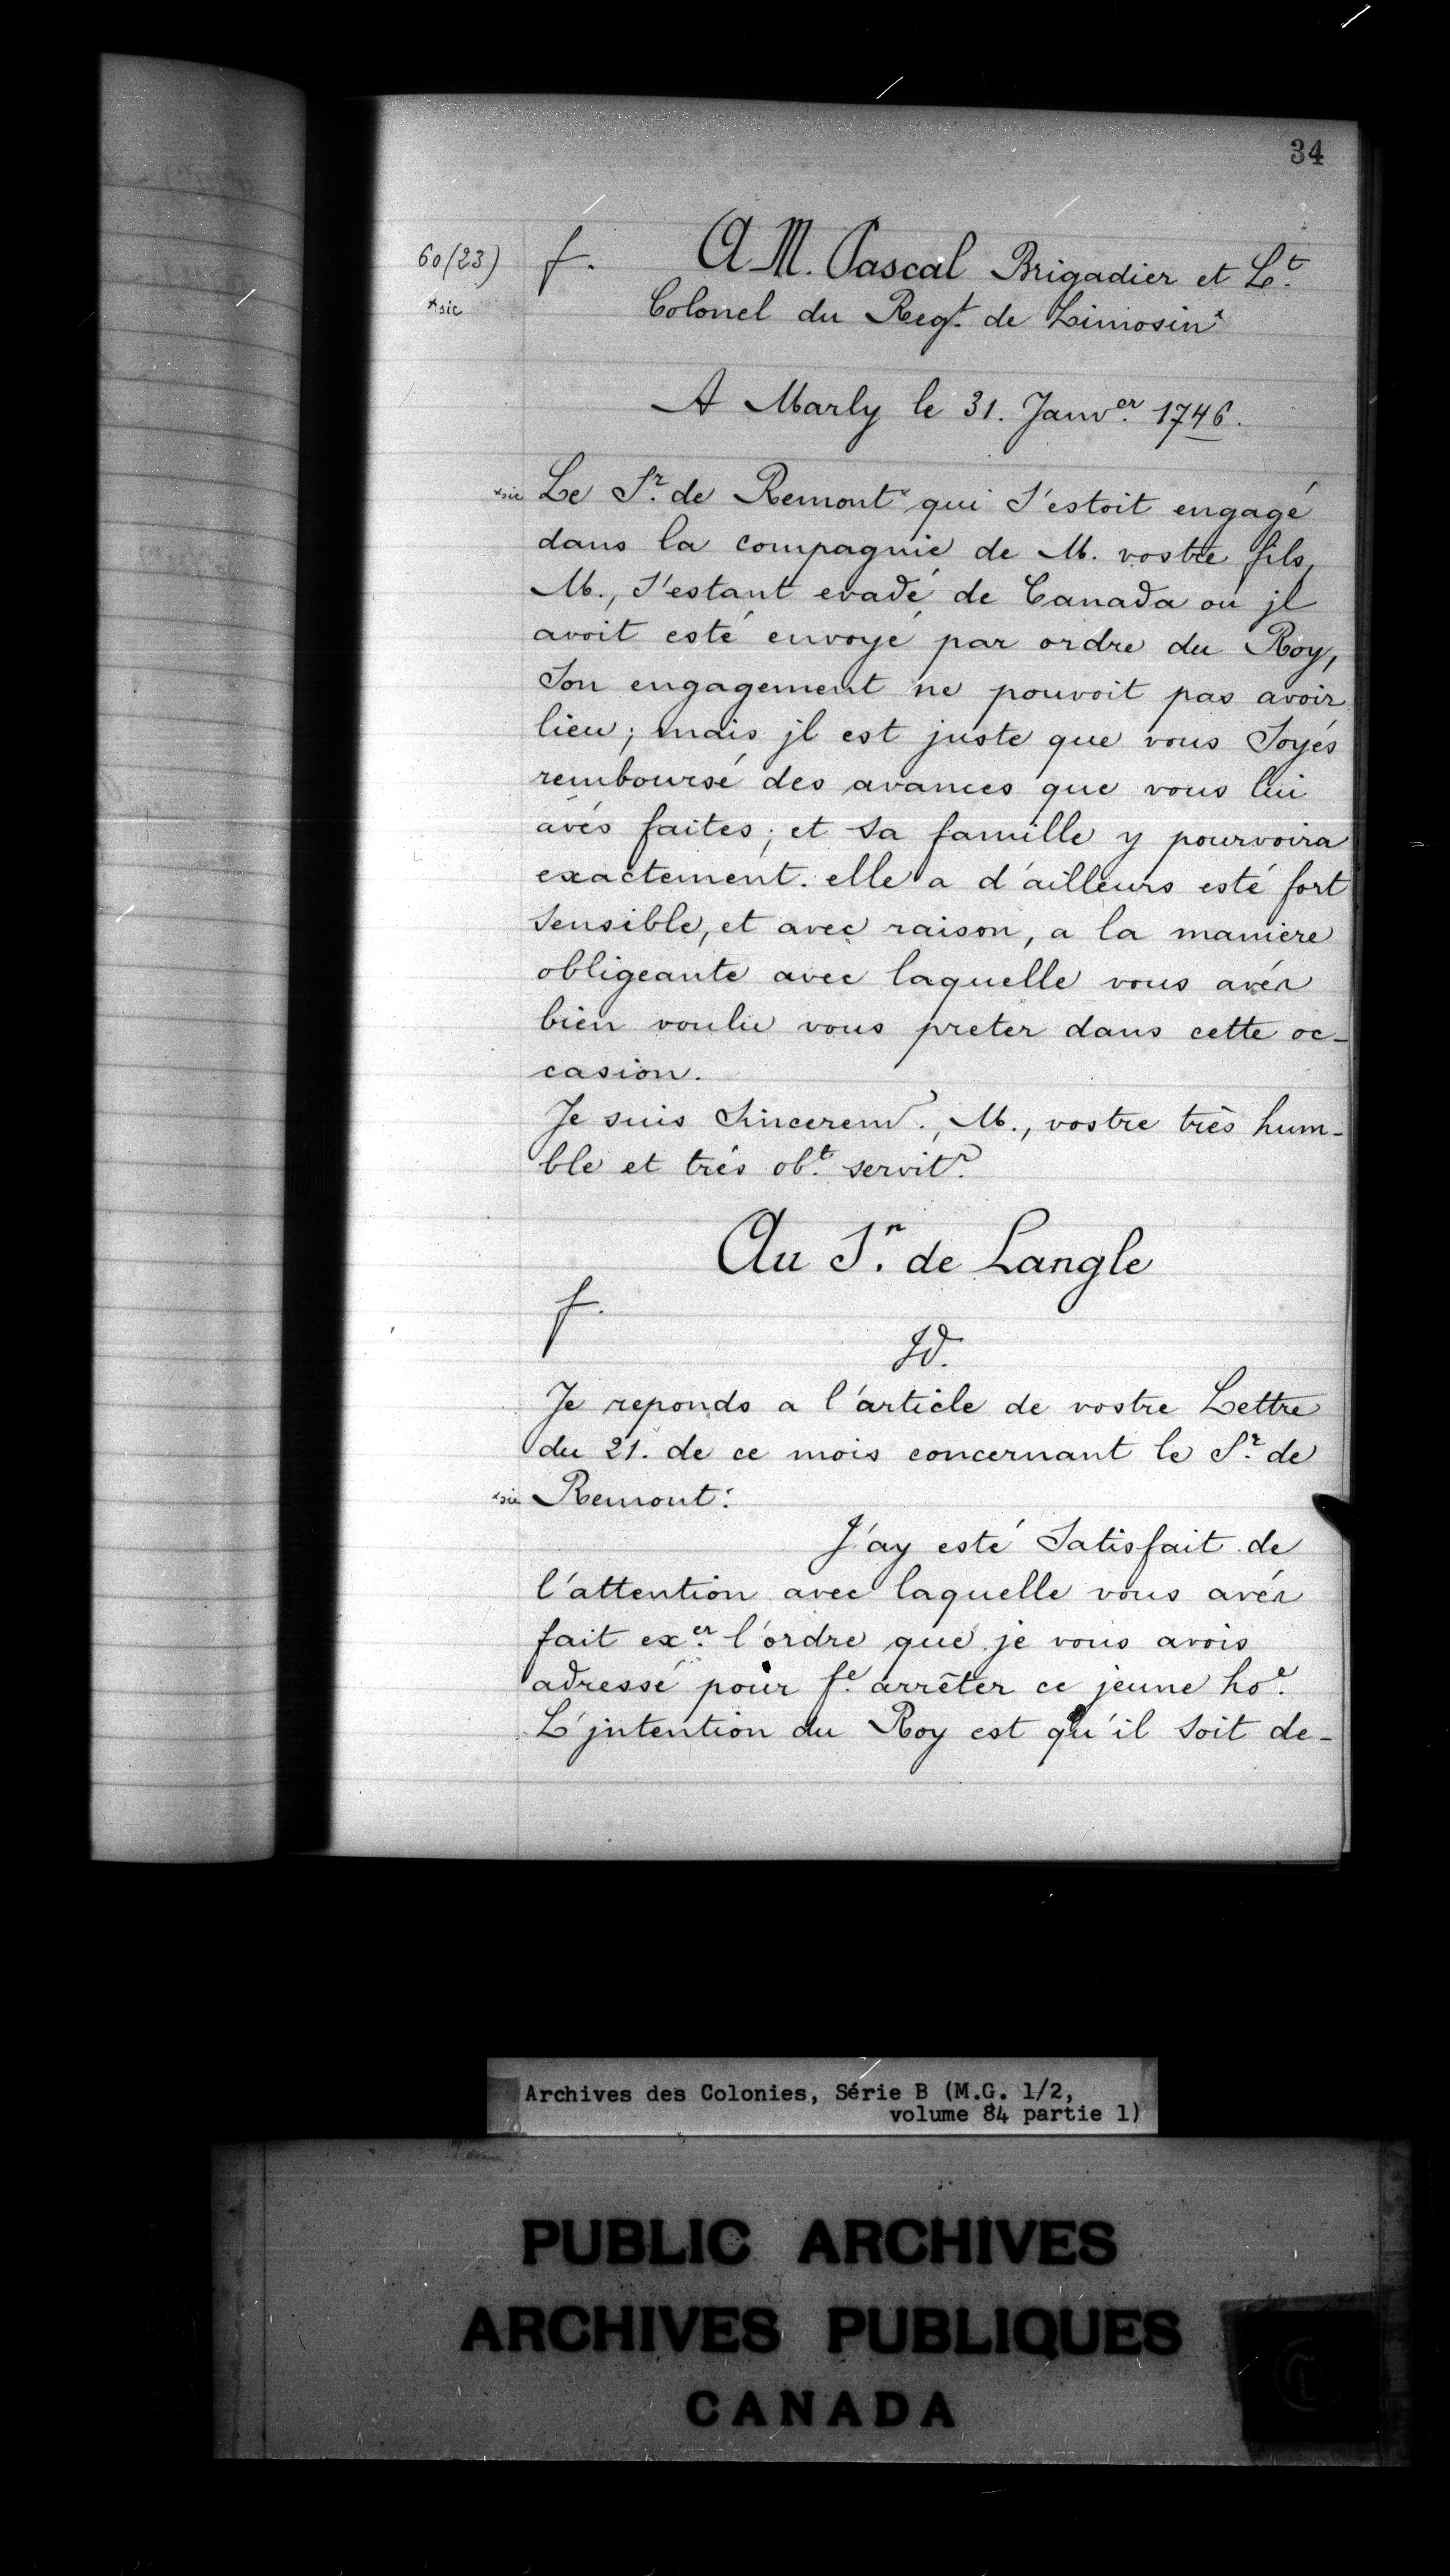 34
60(23) f. A M. Pascal Brigadier et Lt.
*sic Colonel du Regt. de Limosin*
A Marly le 31. Janver. 1746.
*sic Le Sr. de Remont* qui S'estoit engagé
dans la compagnie de M. vostre fils,
M., S'estant evadé de Canada ou jl
avoit esté envoyé par ordre du Roy,
Son engagement ne pouvoit pas avoir
lieu; mais jl est juste que vous Soyés
remboursé des avances que vous lui
avés faites; et sa famille y pourvoira
exactement. elle a d'ailleurs esté fort
sensible, et avec raison, a la maniere
obligeante avec laquelle vous avés
bien voulu vous preter dans cette oc-
casion.
Je suis Sinceremt., M., vostre très hum-
ble et trés obt. servitr.
Au Sr. de Langle
f.
Jd.
Je reponds a l'article de vostre Lettre
du 21. de ce mois concernant le Sr. de
*sic Remont*.
J'ay esté Satisfait de
l'attention avec laquelle vous avés
fait exer. l'ordre que je vous avois
adressé pour fe. arrêter ce jeune hoe.
L'jntention du Roy est qu'il soit de-
Archives des Colonies, Série B (M.G. 1/2,
volume 84 partie 1)
PUBLIC ARCHIVES
ARCHIVES PUBLIQUES
CANADA